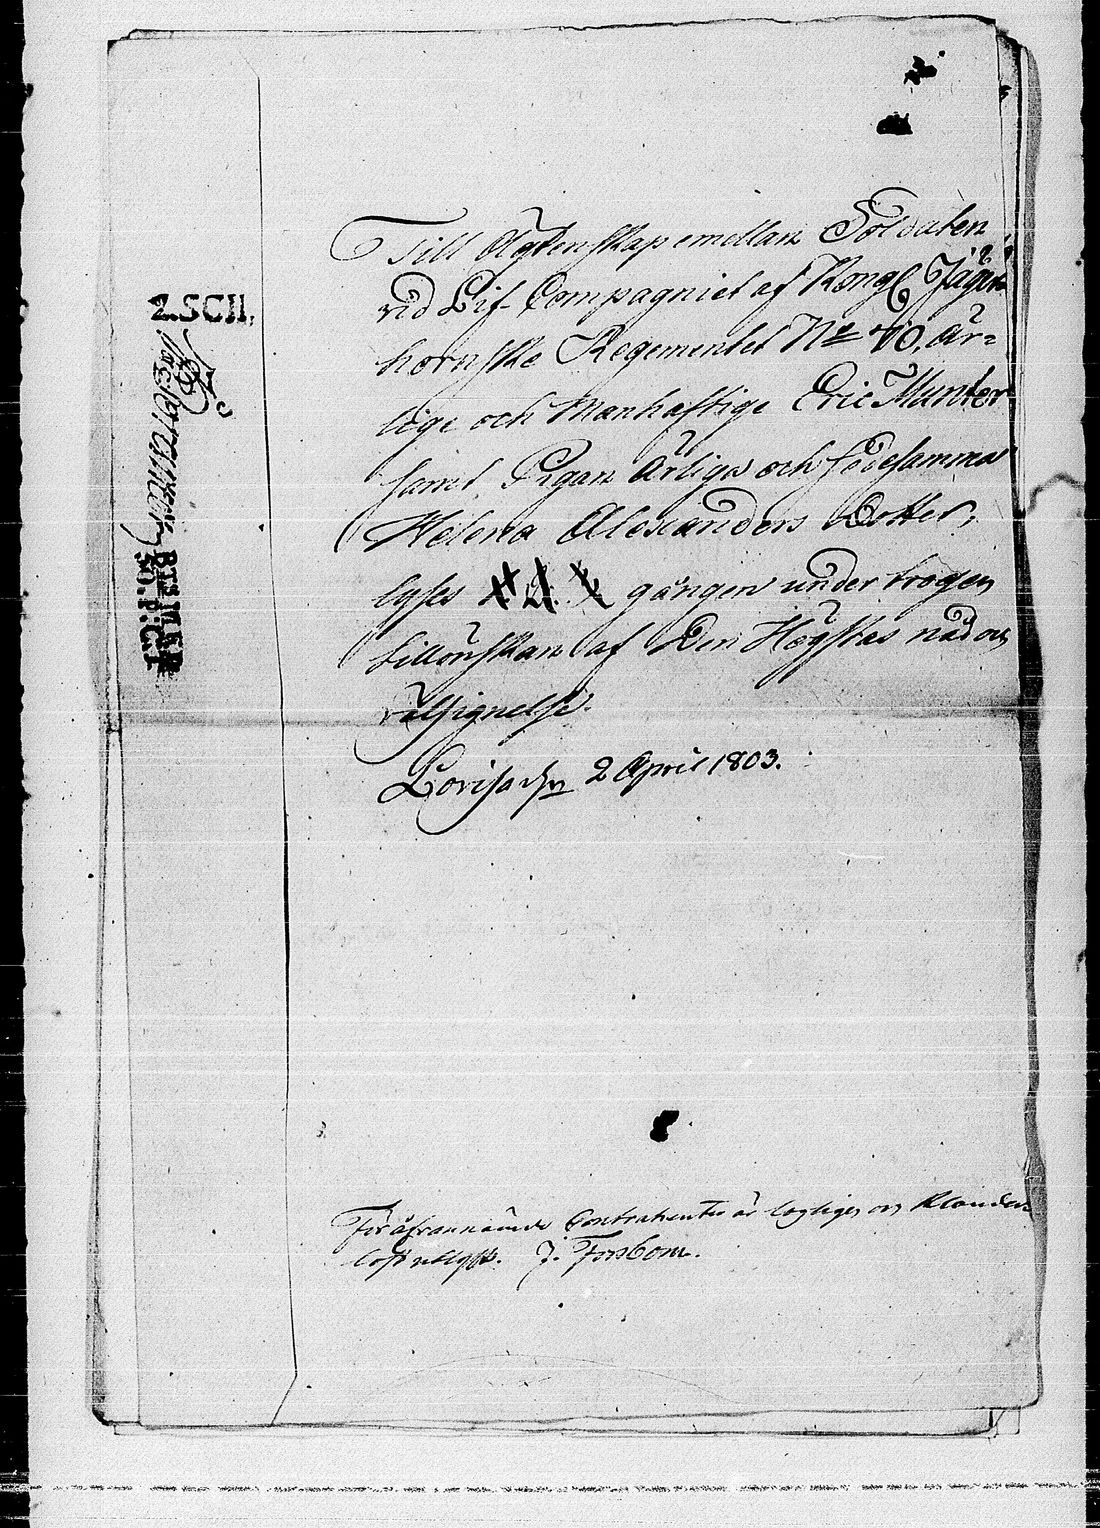 2. SCII.
Till Ägtenskap emellan Soldaten
vid Lif-Compagniet af Kongl Jäger-
hornske Regementet No 70, är=
lige och Manhaftige Eric Munter
samt Pigan Ärliga och sedesamma
Helena Alexanders Dotter,
lyses 1. 2. gången under trogen
tillönskan af Den Högstas nåd och
välsignelse.
Lovisa den 2 April 1803.
För ofvannämde Contrahenter är lagligen och Klander-
löst utlyst. J. Forsbom.